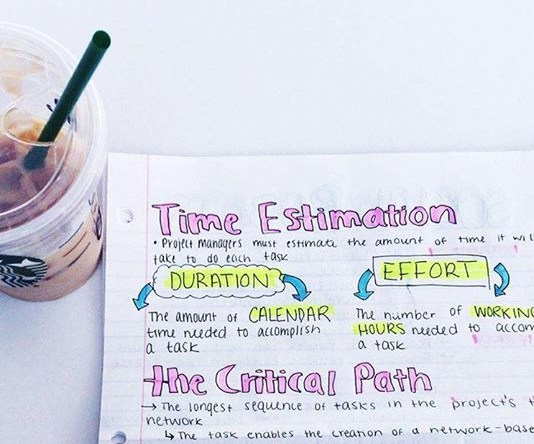 Time Estimation
• Project managers must estimate the amount of time it will
take to do each task
DURATION
EFFORT
The amount of CALENDAR
time needed to accomplish
a task
The number of WORKING
HOURS needed to accom
a task
The Critical Path
→ The longest sequence of tasks in the project's
network
↳ The task enables the creation of a network-base